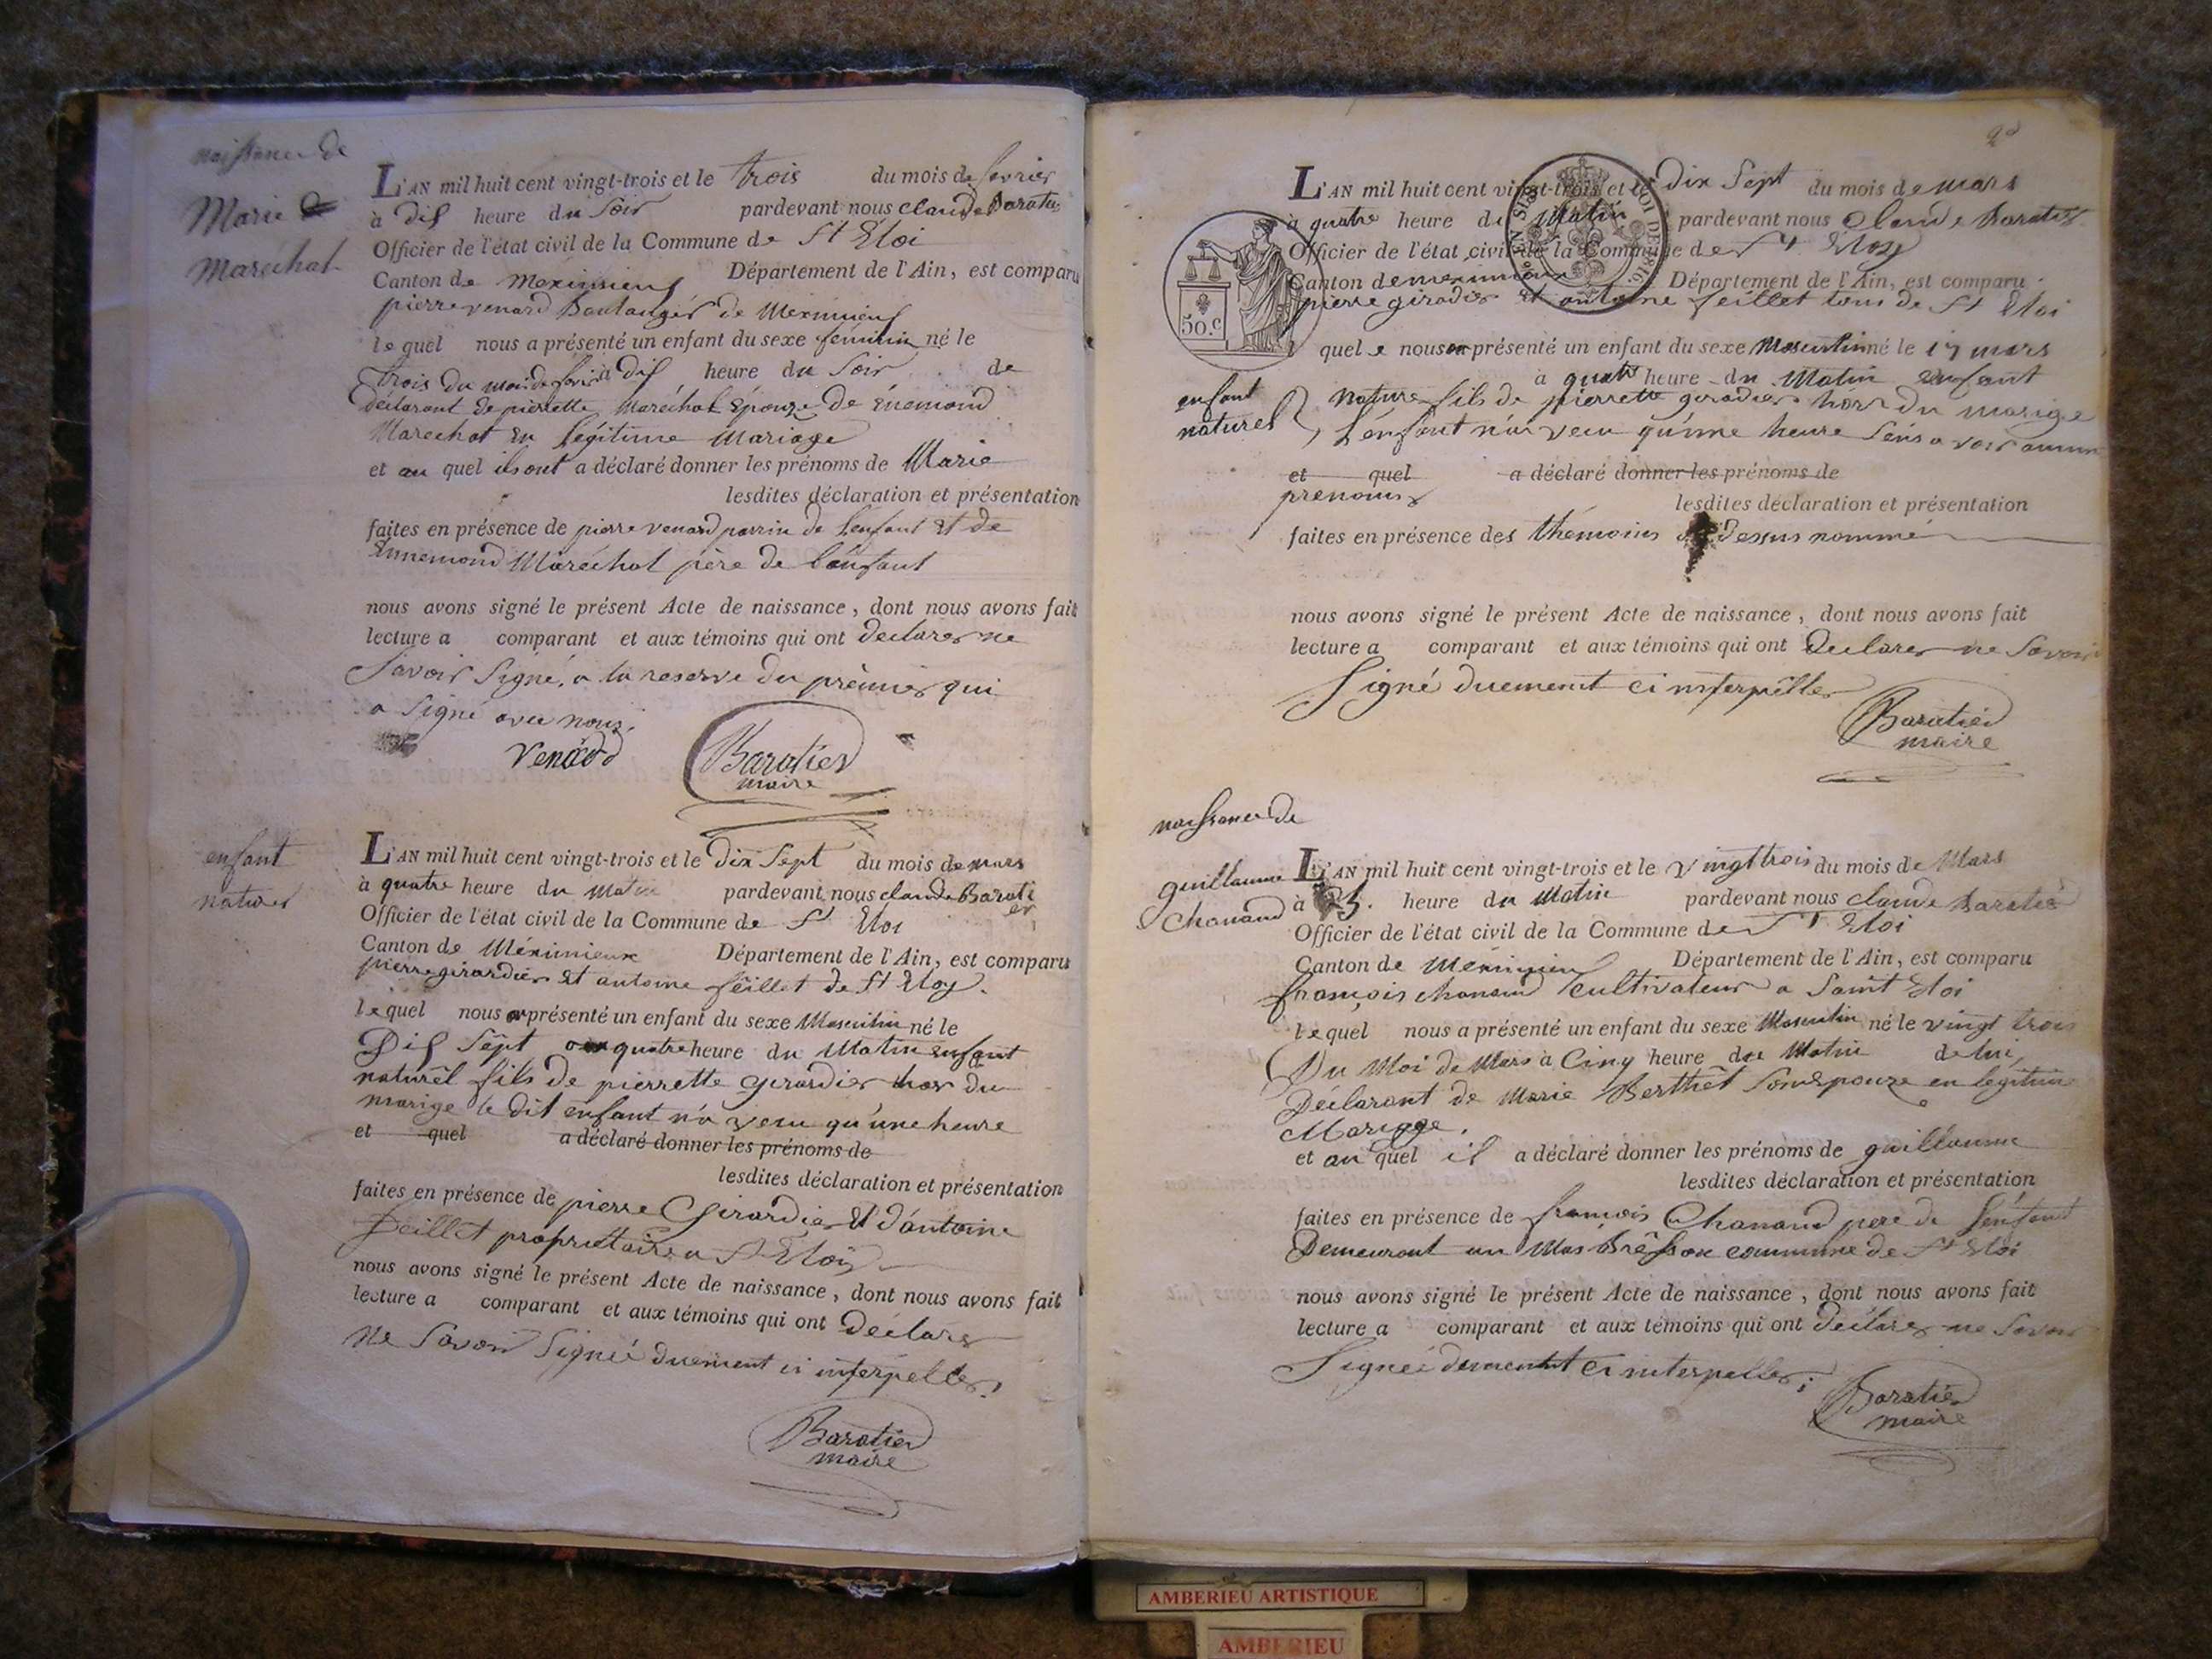 naissance de
Marie
Maréchal
L'AN mil huit cent vingt-trois et le trois du mois de fevrier
à dis heure du Soir pardevant nous claude Baratier
Officier de l'état civil de la Commune de St Eloi
Canton de Meximieux Département de l'Ain, est comparu
pierre venard Boulanger de Meximieux
lequel nous a présenté un enfant du sexe féminin né le
trois du mois de fevrier à dis heure du Soir de
déclarant de pierrette Maréchal Epouze de Enemond
Marechal en légitime Mariage
et au quel ils ont a déclaré donner les prénoms de Marie
lesdites déclaration et présentation
faites en présence de pierre venard parrin de l'enfant et de
Ennemond Maréchal père de l'enfant
nous avons signé le présent Acte de naissance, dont nous avons fait
lecture a comparant et aux témoins qui ont declarer ne
Savoir Signé, a la reserve du premier qui
a Signé avec nous.
Venard Baratier
maire
enfant
naturel
L'AN mil huit cent vingt-trois et le dix Sept du mois de mars
à quatre heure du matin pardevant nous claude Barati
er
Officier de l'état civil de la Commune de St Eloi
Canton de Méximieux Département de l'Ain, est comparu
pierre girardier et antoine feillet de St Eloy.
lequel nous on présenté un enfant du sexe Masculin né le
Dis Sept quatre heure du Matin enfant
naturel fils de pierrette girardier hors du
marige le dit enfant n'a vecu qu'une heure
et quel a déclaré donner les prénoms de
lesdites déclaration et présentation
faites en présence de pierre Girardier et d'antoine
feillet proprietaire a St Eloy
nous avons signé le présent Acte de naissance, dont nous avons fait
lecture a comparant et aux témoins qui ont declarer
ne Savoir Signeé duement ci interpeller.
Baratier
maire
L'AN mil huit cent vingt-trois et le dix Sept du mois de mars
à quatre heure du Matin pardevant nous Claude Baratier
Officier de l'état civil de la Commune de St Eloy
Canton de meximieux Département de l'Ain, est comparu
pierre giradier et antoine feillet tous de St Eloi
50.c
quel e nous on présenté un enfant du sexe Masculin né le 17 mars
à quatre heure du Matin enfant
enfant
naturel
nature fils de pierrette giradier hors du marige
L'enfant n'ai vecu qu'une heure sens avoir aucun
et quel a déclaré donner les prénoms de
prenoms
lesdites déclaration et présentation
faites en présence des thémoins dessus nommé
nous avons signé le présent Acte de naissance, dont nous avons fait
lecture a comparant et aux témoins qui ont declarer ne Savoir
Signé duement ci interpeller
Baratier
maire
naissance de
guillaume
Chanand
L'AN mil huit cent vingt-trois et le vingt trois du mois de Mars
à 5. heure du Matin pardevant nous claude Baratier
Officier de l'état civil de la Commune de St Eloi
Canton de Meximieux Département de l'Ain, est comparu
françois chanand cultivateur a Saint Eloi
lequel nous a présenté un enfant du sexe Masculin né le vingt trois
Du Moi de Mars à Cinq heure du Matin de lui
Déclarant de Marie Berthet Son Epouze en légitime
Mariage.
et au quel il a déclaré donner les prénoms de guillaume
lesdites déclaration et présentation
faites en présence de francois Chanand pere de l'enfant
Demeurant au Mas commune de St Eloi
nous avons signé le présent Acte de naissance, dont nous avons fait
lecture a comparant et aux témoins qui ont déclarer ne Savoir
Signeé duement ci interpeller;
Baratier
maire
AMBERIEU ARTISTIQUE
AMBERIEU